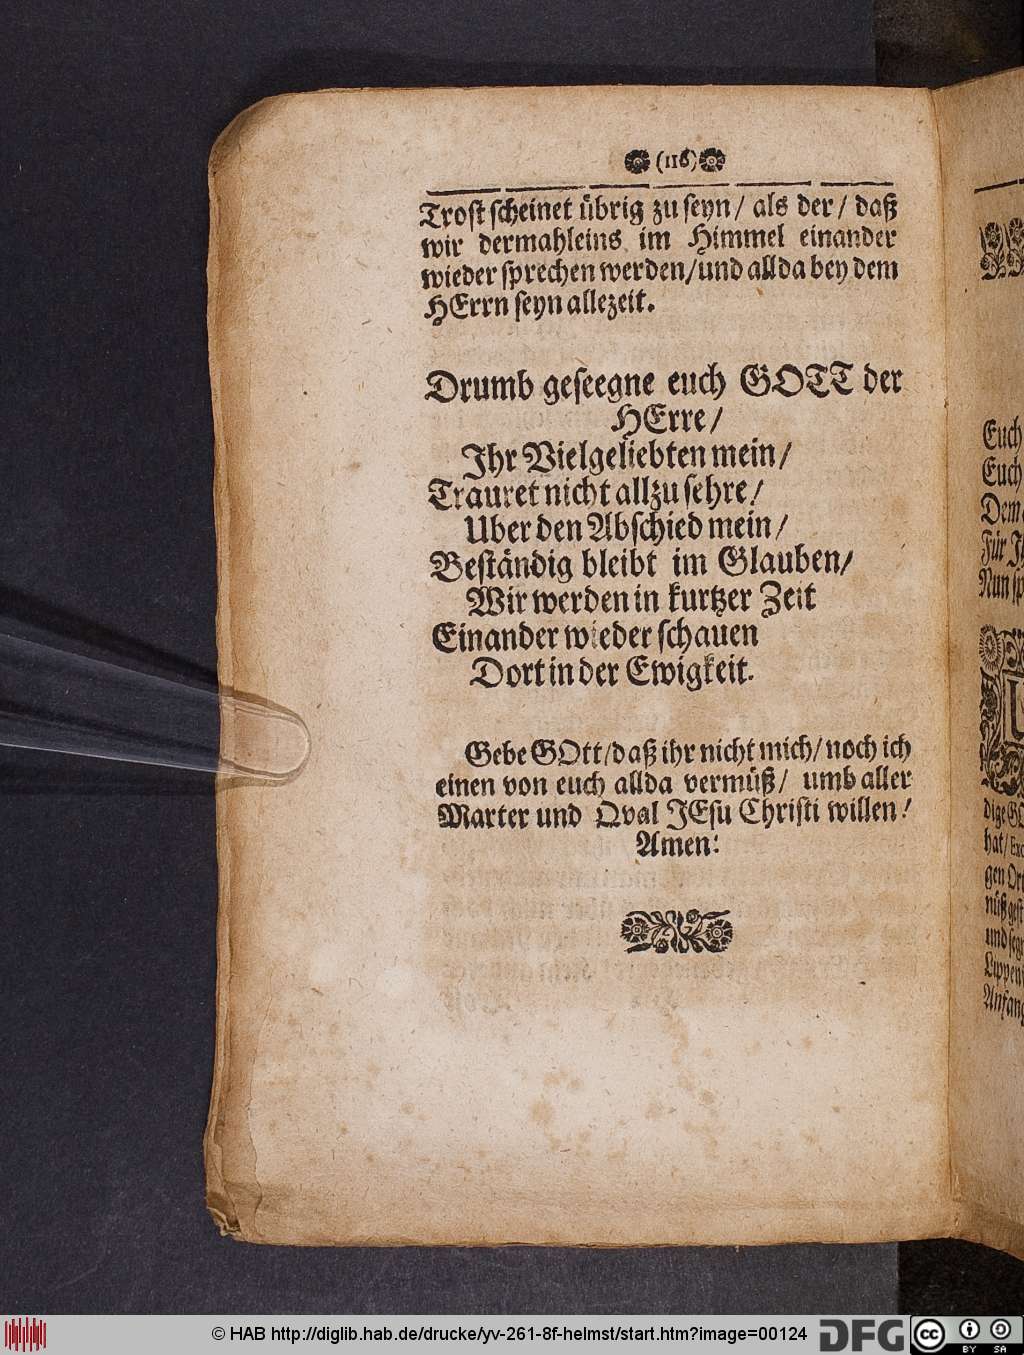 (116)
Trost scheinet übrig zu seyn/ als der/ daß
wir dermahleins im Himmel einander
wieder sprechen werden/und allda bey dem
HErrn seyn allezeit.
Drumb geseegne euch GOTT der
HErre/
Ihr Vielgeliebten mein/
Trauret nicht allzu sehre/
Uber den Abschied mein/
Beständig bleibt im Glauben/
Wir werden in kurtzer Zeit
Einander wieder schauen
Dort in der Ewigkeit.
Gebe GOtt/daß ihr nicht mich/noch ich
einen von euch allda vermüß/ umb aller
Marter und Qval JEsu Christi willen!
Amen!
Euch
Euch
Für
Nun
dige
hat/
gen
und
Lippen
Anfang
© HAB http://diglib.hab.de/drucke/yv-261-8f-helmst/start.htm?image=00124
DFG
cc
BY
SA